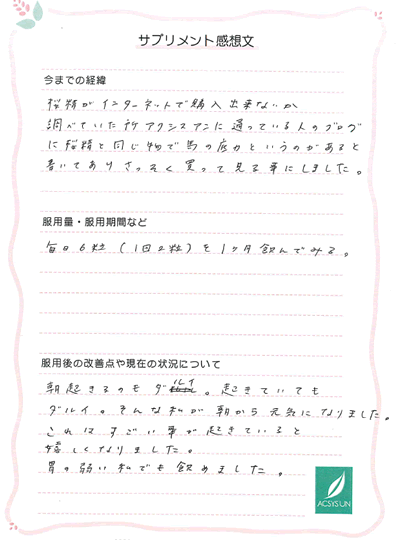 サプリメント感想文
今までの経緯
桜精がインターネットで購入出来ないか
調べていた所アクシスアンに通っている人のブログ
に桜精と同じ物で馬の底力というのがあると
書いてありさっそく買って見る事にしました。
服用量・服用期間など
毎日6粒(1回2粒)を1ヶ月飲んでみる。
服用後の改善点や現在の状況について
朝起きるのもダルイ。起きていても
ダルイ。そんな私が朝から元気になりました。
これはすごい事が起きていると
嬉しくなりました。
胃の弱い私でも飲めました。
ACSYS'UN